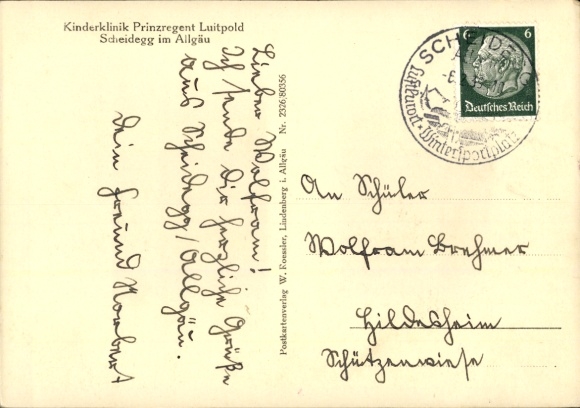 Kinderklinik Prinzregent Luitpold
Scheidegg im Allgäu
Lieber Wolfram!
Ich sende dir herzliche Grüße
aus Scheidegg/Allgäu.
Dein Freund Norbert
Postkartenverlag W. Roessler, Lindenberg i. Allgäu Nr. 2326/80356
SCHEIDEGG
Luftkurort · Wintersportplatz
6
6
Deutsches Reich
An Schüler
Wolfram Brehmer
Hildesheim
Schützenwiese